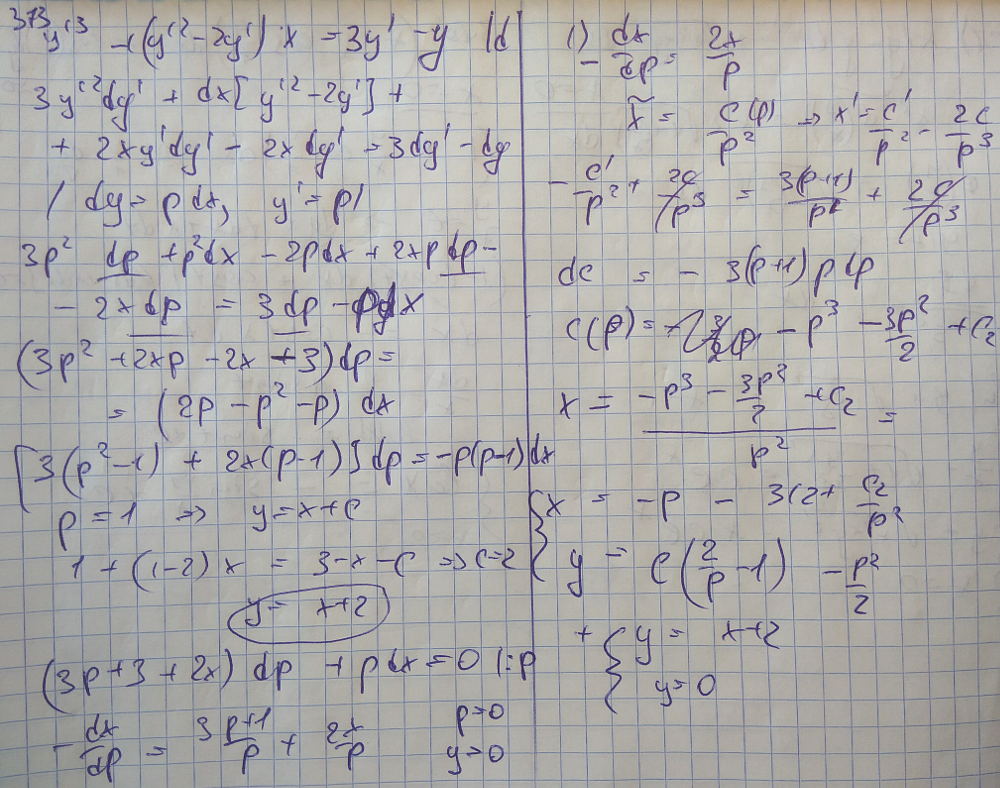 373
y'³ + (y'² - 2y') x = 3y' - y | d
3y'² dy' + dx[y'² - 2y'] +
+ 2xy'dy' - 2x dy' = 3dy' - dy
/ dy = p dx, y' = p /
3p² dp + p²dx - 2pdx + 2xp dp -
- 2x dp = 3 dp - pdx
(3p² + 2xp - 2x + 3) dp =
= (2p - p² - p) dx
[3(p² - 1) + 2x(p-1)] dp = -p(p-1)dx
p = 1 ⇒ y = x + c
1 + (1-2) x = 3 - x - c ⇒ c = 2
y = x+2
(3p + 3 + 2x) dp + p dx = 0 |:p
- dx/dp = 3 (p+1)/p + 2x/p p=0
y=0
1) - dx/dp = 2x/p
x̃ = c(p)/p² ⇒ x' = c'/p² - 2c/p³
- c'/p² + 2c/p³ = 3(p+1)/p + 2c/p³
dc = - 3(p+1) p dp
c(p) = - p³ - 3p²/2 + c₂
x = (-p³ - 3p²/2 + c₂)/p² =
{ x = -p - 3/2 + c₂/p²
y = c(2/p - 1) - p²/2
+ { y = x+2
y = 0